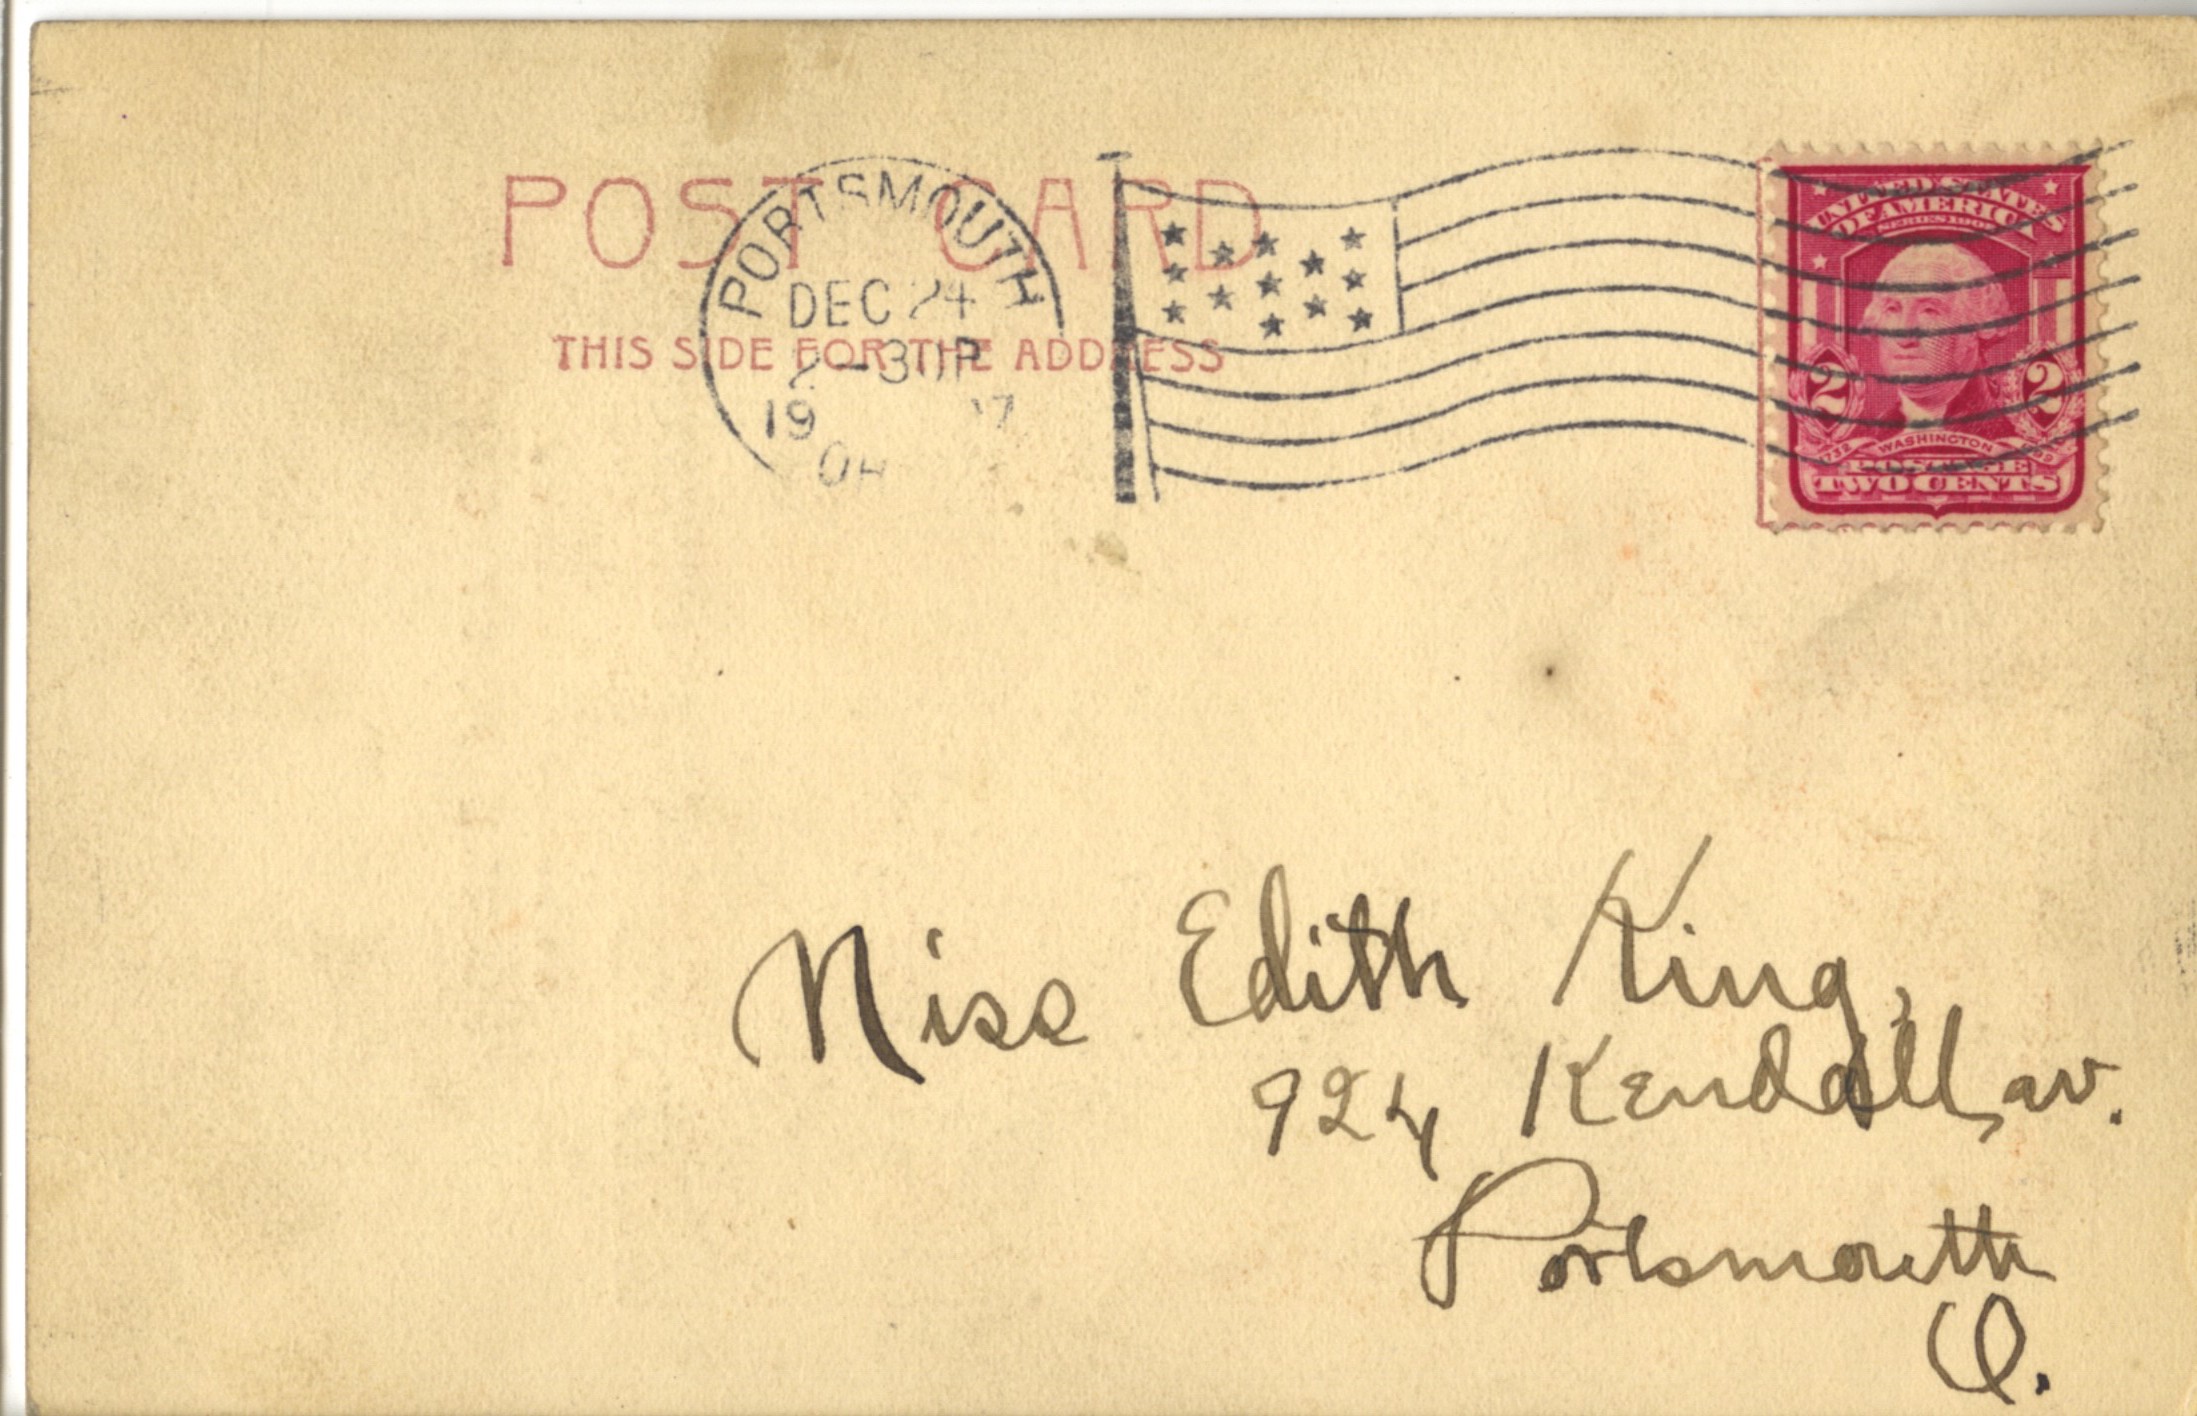 POST CARD
THIS SIDE FOR THE ADDRESS
PORTSMOUTH
DEC 24
2 - 30 P
19 07
OH
UNITED STATES
OF AMERICA
SERIES 1902
2 2
1732 WASHINGTON 1799
POSTAGE
TWO CENTS
Miss Edith King,
924 Kendall av.
Portsmouth
O.